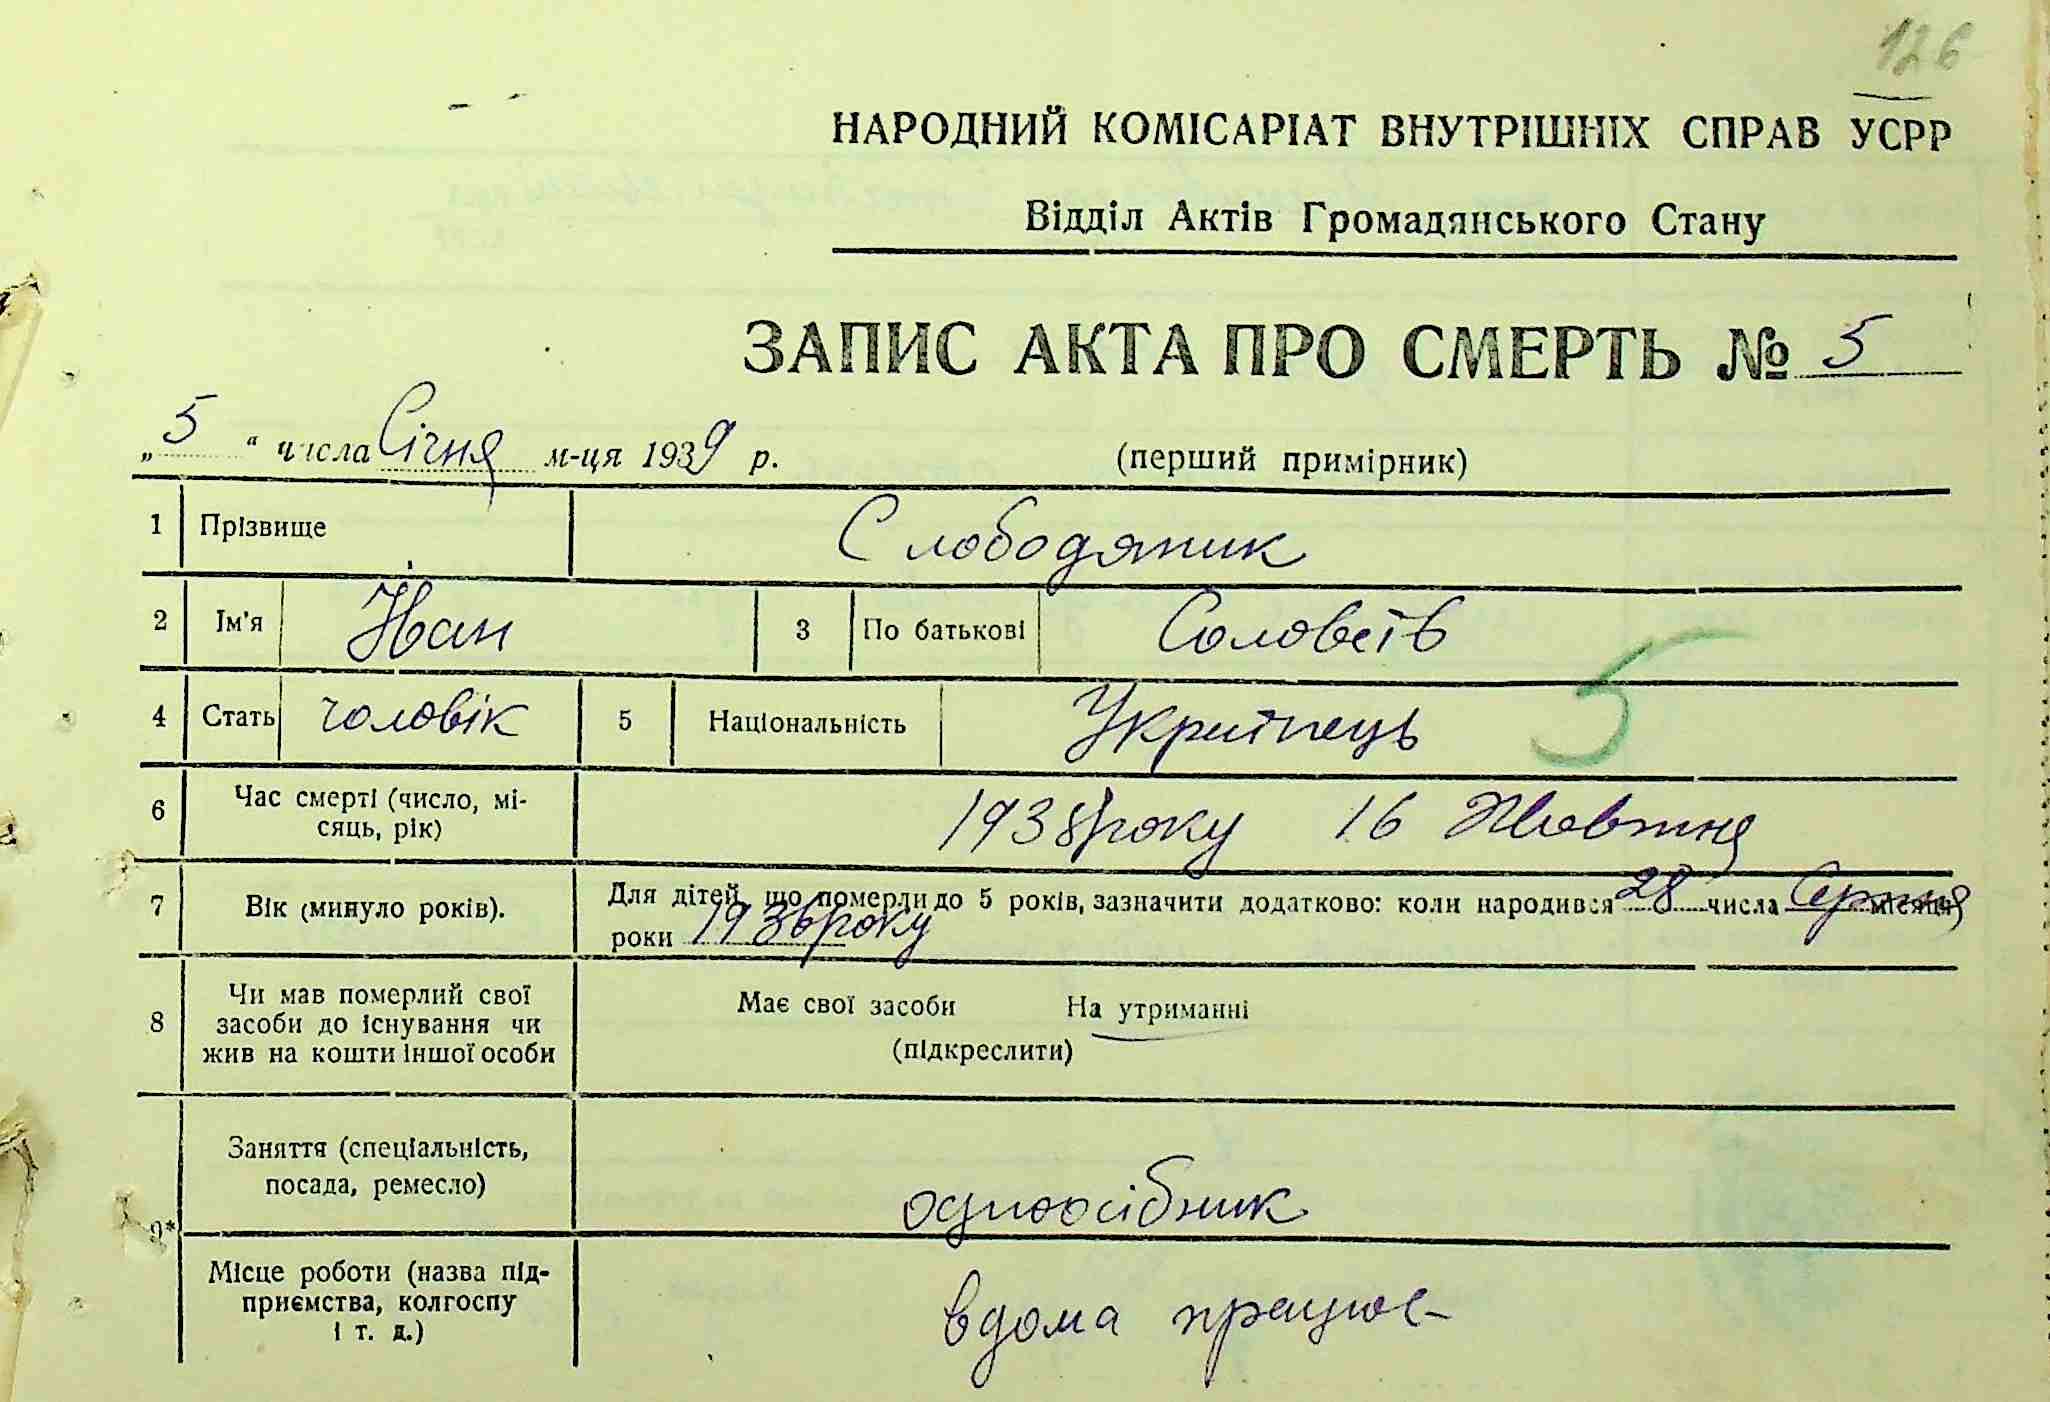 126
НАРОДНИЙ КОМІСАРІАТ ВНУТРІШНІХ СПРАВ УСРР
Відділ Актів Громадянського Стану
ЗАПИС АКТА ПРО СМЕРТЬ № 5
„5“ числа Січня м-ця 1939 р. (перший примірник)
1 Прізвище Слободяник
2 Ім'я Іван 3 По батькові Соловеїв
4 Стать чоловік 5 Національність Українець 5
6 Час смерті (число, мі-
сяць, рік) 1938 року 16 Жовтня
7 Вік (минуло років). Для дітей, що померли до 5 років, зазначити додатково: коли народився 28 числа Серпня місяця
роки 1936 року
8 Чи мав померлий свої
засоби до існування чи
жив на кошти іншої особи
Має свої засоби На утриманні
(підкреслити)
9* Заняття (спеціальність,
посада, ремесло) одноосібник
Місце роботи (назва під-
приємства, колгоспу
і т. д.) вдома працює